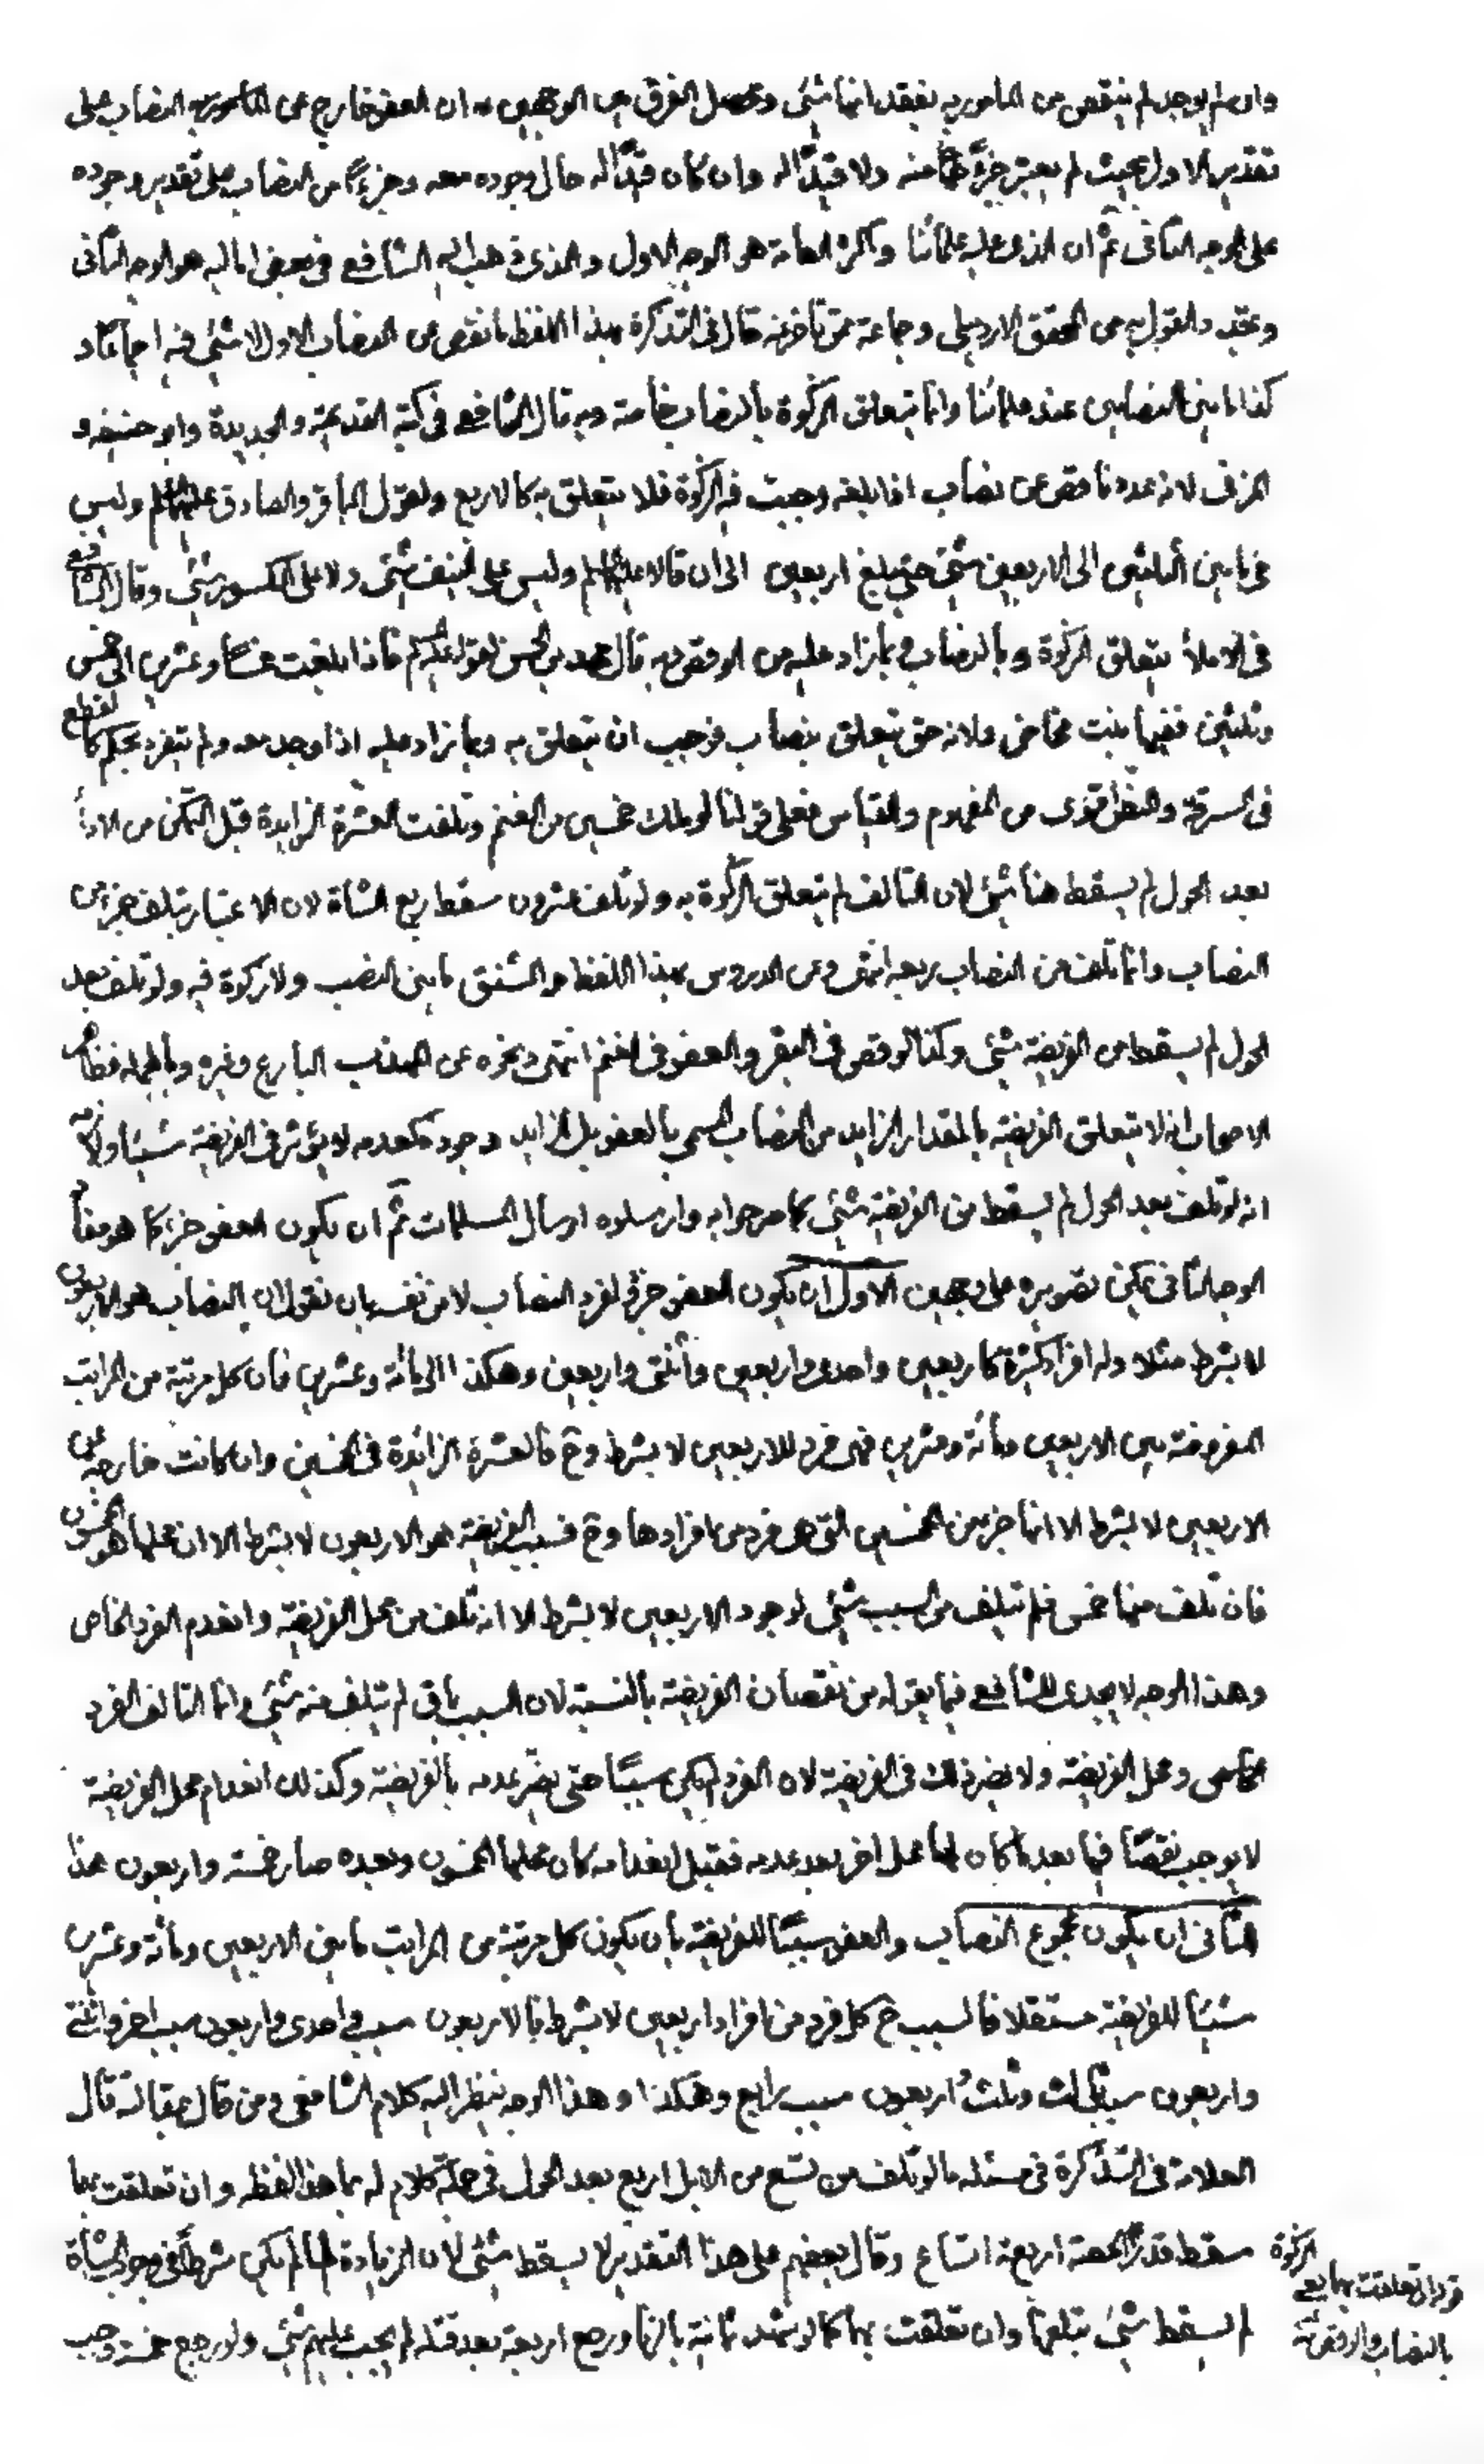 وان لم يوجد لم ينقص من المامور به بفقدانها شئ وتحصل الفرق بين الوجهين ان العفو خارج عن النصاب على
تقدير الاول بحيث لم يعتبر جزءً منه ولا قيدًا له وان كان قيدًا له حال وجوده معه وجزءً من النصاب على تقدير وجوده
على الوجه الثانى ثم ان الذى عليه علمائنا واكثر العامة هو الوجه الاول والذى ذهب اليه الشافعى فى بعض اماليه هو الوجه الثانى
والقول به من المحقق الاردبيلى وجماعة ممن تاخر عنه قال فى التذكرة بهذا اللفظ ما نقص عن النصاب الاول لا شئ فيه اجماعا و
كذا ما بين النصابين عند علمائنا وانما يتعلق الزكوة بالنصاب خاصة وبه قال الشافعى فى كتبه القديمة والجديدة وابو حنيفه و
المزنى لانه عدد ناقص عن نصاب اذا بلغه وجبت فيه الزكوة فلا يتعلق به كالاربع ولقول الباقر والصادق عليهما السلم وليس
فى ما بين الثلثين الى الاربعين شئ حتى يبلغ اربعين الى ان قالا عليهما السلم وليس على النيف شئ ولا على الكسور شئ وقال الشافعى
فى الاملأ يتعلق الزكوة بالنصاب وبما زاد عليه من الوقص وبه قال محمد بن الحسن لقوله عليه السلم فاذا بلغت خمسًا وعشرين الى خمس
وثلثين ففيها بنت مخاض ولانه حق تعلق بنصاب فوجب ان يتعلق به وبما زاد عليه اذا وجد معه ولم ينفرد بحكم كالقطع
فى السرقة والنطق اقوى من المفهوم والقياس فعلى قولنا لو ملك خمسين من الغنم وتلفت العشرة الزايدة قبل التمكن من الادأ
بعد الحول لم يسقط هنا شئ لان التالف لم يتعلق الزكوة به ولو تلف عشرون سقط ربع الشاة لان الاعتبار بتلف جزء من
النصاب وانما تلف من النصاب ربعه انتهى وعن الدروس بهذا اللفظ والشنق ما بين النصب ولا زكوة فيه ولو تلف بعد
الحول لم يسقط من الفريضة شئ وكذا الوقص فى البقر والعفو فى الغنم انتهى ونحوه عن المهذب البارع وغيره وبالجملة فظاهر
الاصحاب انه لا يتعلق الفريضة بالمقدار الزايد من النصاب المسمى بالعفو بل الزايد وجوده كعدمه لا يؤثر فى الفريضة شيئا ولازمه
انه لو تلف بعد الحول لم يسقط من الفريضة شئ كما صرحوا به وارسلوه ارسال المسلمات ثم ان يكون العفو جزء كما هو مفاد
الوجه الثانى يمكن تصويره على وجهين الاول ان يكون العفو جزء لفرد النصاب لا من نفسه بان نقول ان النصاب هو الاربعون
لا بشرط مثلا وله افراد كثيرة كاربعين واحدى واربعين واثنتى واربعين وهكذا الى مأئة وعشرين فان كل مرتبة من المراتب
المفروضة بين الاربعين ومأئة وعشرين فهى فرد للاربعين لا بشرط وح فالعشرة الزائدة فى الخمسين وان كانت خارجة عن
الاربعين لا بشرط الا انها جزء من الخمسين التى هى فرد من افرادها وح فسبب الفريضة هو الاربعون لا بشرط الا ان محلها هو الخمسون
فان تلف منها خمس فلم يتلف من السبب شئ لوجود الاربعين لا بشرط الا انه تلف من محل الفريضة وانعدم الفرد الخاص
وهذا الوجه لا يجدى للشافعى فيما يقوله من نقصان الفريضة بالنسبة لان السبب باق لم يتلف منه شئ وانما التالف الفرد
الخاص ومحل الفريضة ولا يضر ذلك فى الفريضة لان الفرد لم يكن سببًا حتى يضر عدمه بالفريضة وكذلك انعدام محل الفريضة
لا يوجب نقصًا فيها بعد ما كان لها محل اخر بعد عدمه فقبل انعدامه كان محلها الخمسون وبعده صار خمسة واربعون هذا
الثانى ان يكون مجموع النصاب والعفو سببًا للفريضة بان يكون كل مرتبة من المراتب ما بين الاربعين ومأئة وعشرين
سببًا للفريضة مستقلا فالسبب ح كل فرد من افراد اربعين لا بشرط فالاربعون سبب واحدى واربعون سبب اخر واثنتى
واربعون سبب ثالث وثلث اربعون سبب رابع وهكذا وهذا الوجه ينظر اليه كلام الشافعى ومن قال بمقالته قال
العلامة فى التذكرة فى مسئلة ما لو تلف من تسع من الابل اربع بعد الحول فى جملة كلام له بما هذا لفظه وان تعلقت بهما
سقط قدر الحصة اربعة اتساع وقال بعضهم على هذا التقدير لا يسقط شئ لان الزيادة لما لم يكن شرطًا فى وجوب الشاة
لم يسقط شئ بتلفها وان تعلقت بها كما لو شهد ثمانية بالزنا ورجع اربعة بعد قتله لم يجب عليهم شئ ولو رجع خمسة وجب
الزكوة
قوله وان تعلقت بهما يعنى
بالنصاب والوقص